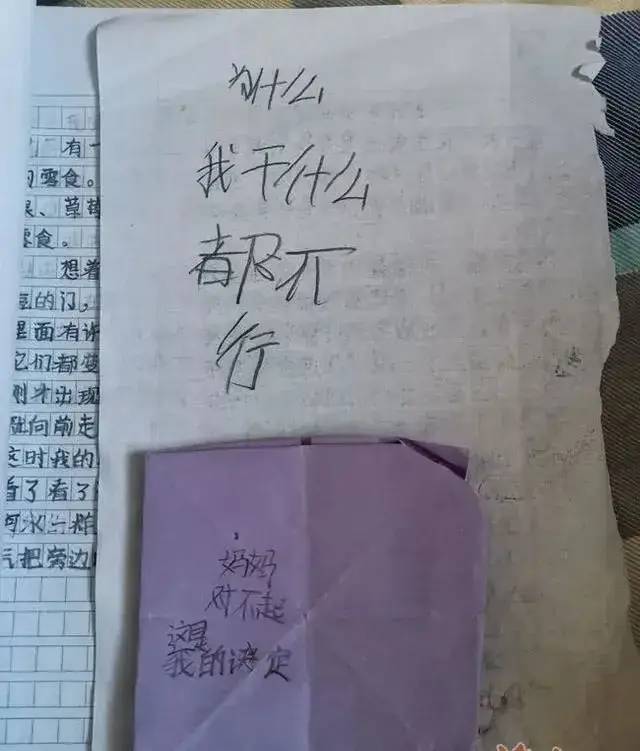 为什么
我干什么
都不
行
妈妈
对不起
这是
我的决定
有一
的零食。
果、草莓
零食。
想着
的门,
里面有许
它们都变
刚才出现
向前走
这时我的
看了看了
河水一
把旁边